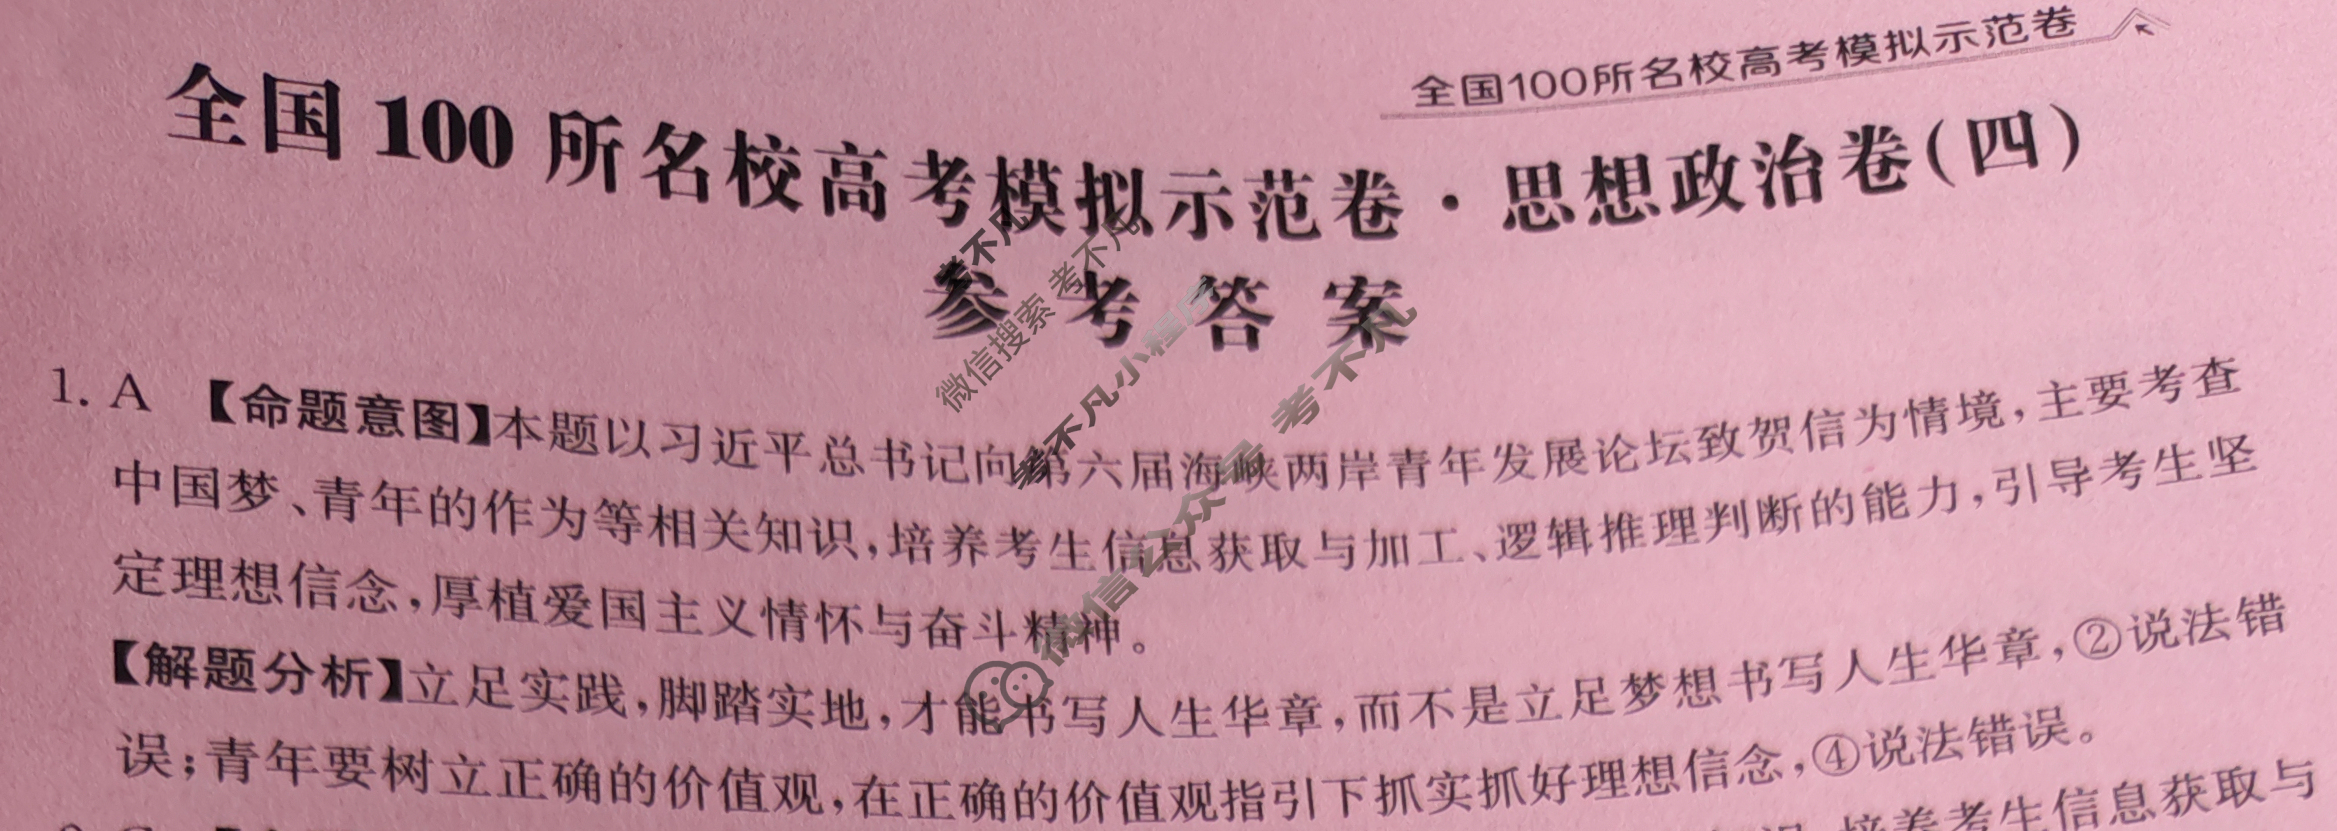 全国100所名校高考模拟示范卷
全国100所名校高考模拟示范卷·思想政治卷(四)
参考答案
1. A 【命题意图】本题以习近平总书记向第六届海峡两岸青年发展论坛致贺信为情境,主要考查
中国梦、青年的作为等相关知识,培养考生信息获取与加工、逻辑推理判断的能力,引导考生坚
定理想信念,厚植爱国主义情怀与奋斗精神。
【解题分析】立足实践,脚踏实地,才能书写人生华章,而不是立足梦想书写人生华章,②说法错
误;青年要树立正确的价值观,在正确的价值观指引下抓实抓好理想信念,④说法错误。
培养考生信息获取与
考不凡
微信搜索 考不凡
考不凡小程序
微信公众号 考不凡